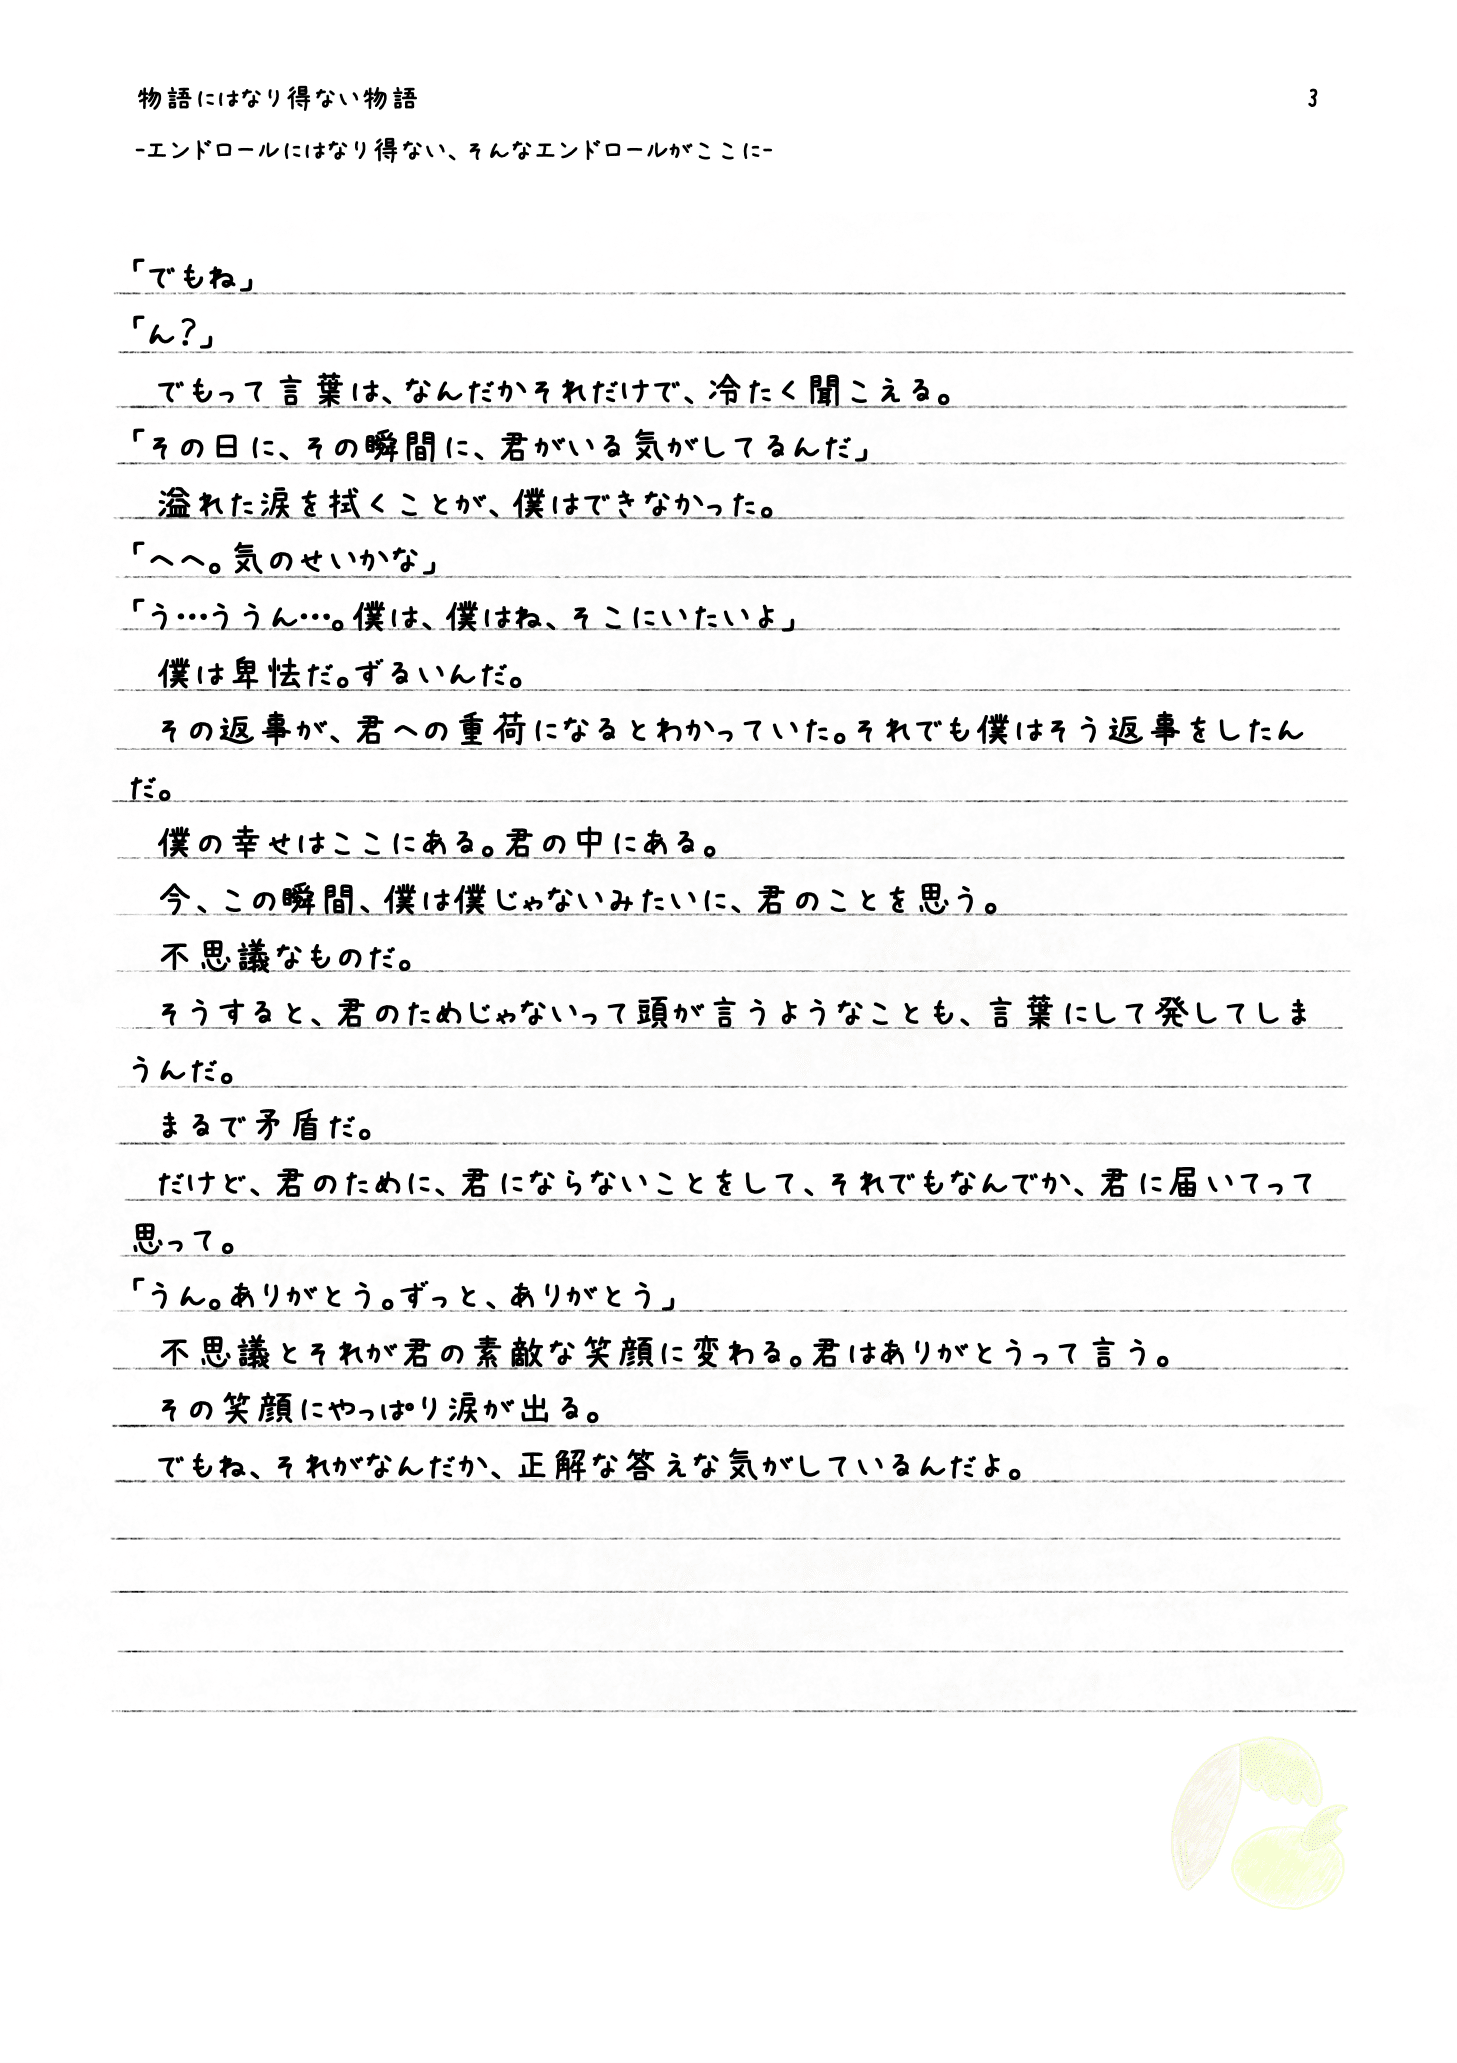 物語にはなり得ない物語
3
-エンドロールにはなり得ない、そんなエンドロールがここに-
「でもね」
「ん?」
　でもって言葉は、なんだかそれだけで、冷たく聞こえる。
「その日に、その瞬間に、君がいる気がしてるんだ」
　溢れた涙を拭くことが、僕はできなかった。
「へへ。気のせいかな」
「う…ううん…。僕は、僕はね、そこにいたいよ」
　僕は卑怯だ。ずるいんだ。
　その返事が、君への重荷になるとわかっていた。それでも僕はそう返事をしたん
だ。
　僕の幸せはここにある。君の中にある。
　今、この瞬間、僕は僕じゃないみたいに、君のことを思う。
　不思議なものだ。
　そうすると、君のためじゃないって頭が言うようなことも、言葉にして発してしま
うんだ。
　まるで矛盾だ。
　だけど、君のために、君にならないことをして、それでもなんでか、君に届いてって
思って。
「うん。ありがとう。ずっと、ありがとう」
　不思議とそれが君の素敵な笑顔に変わる。君はありがとうって言う。
　その笑顔にやっぱり涙が出る。
　でもね、それがなんだか、正解な答えな気がしているんだよ。